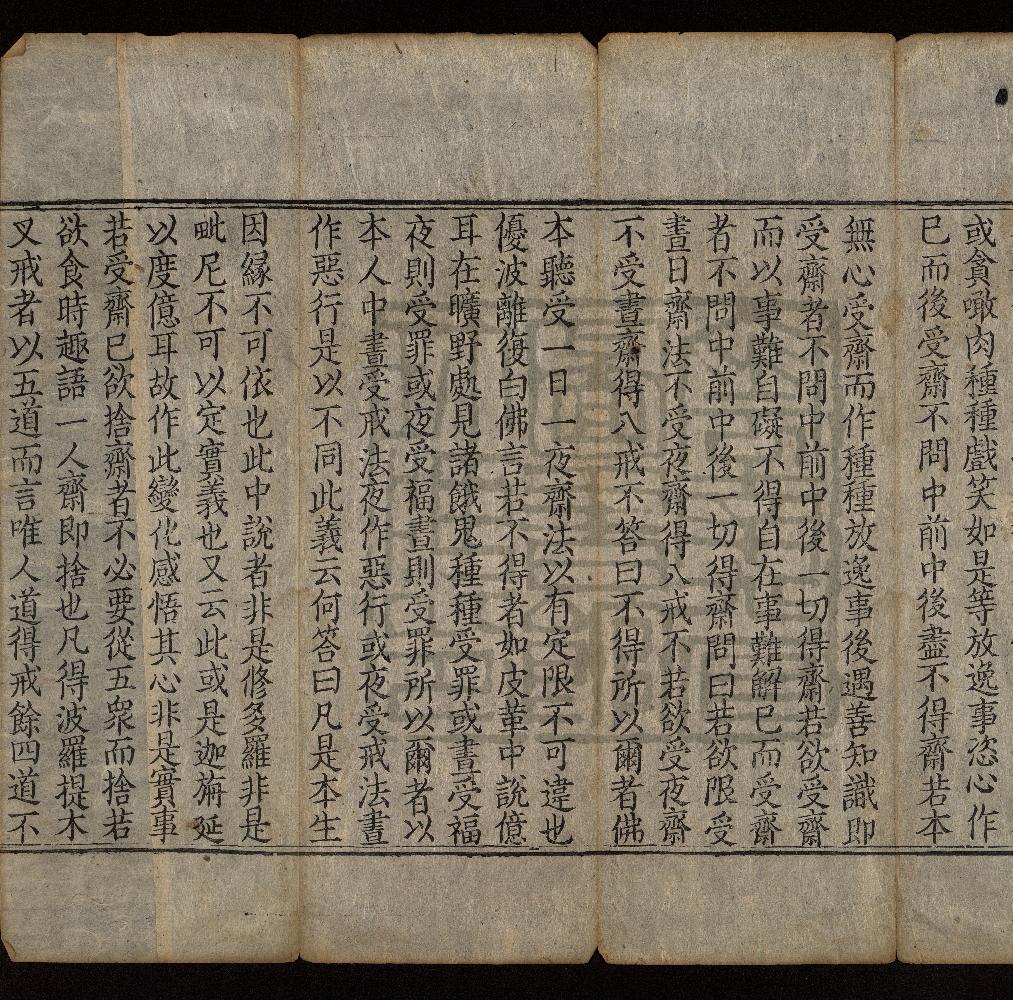 或貪噉肉種種戲笑如是等放逸事恣心作
已而後受齋不問中前中後盡不得齋若本
無心受齋而作種種放逸事後遇善知識即
受齋者不問中前中後一切得齋若欲受齋
而以事難自礙不得自在事難解已而受齋
者不問中前中後一切得齋問曰若欲限受
晝日齋法不受夜齋得八戒不若欲受夜齋
不受晝齋得八戒不答曰不得所以爾者佛
本聽受一日一夜齋法以有定限不可違也
優波離復白佛言若不得者如皮革中說億
耳在曠野處見諸餓鬼種種受罪或晝受福
夜則受罪或夜受福晝則受罪所以爾者以
本人中晝受戒法夜作惡行或夜受戒法晝
作惡行是以不同此義云何答曰凡是本生
因緣不可依也此中說者非是修多羅非是
毗尼不可以定實義也又云此或是迦旃延
以度億耳故作此變化感悟其心非是實事
若受齋已欲捨齋者不必要從五眾而捨若
欲食時趣語一人齋即捨也凡得波羅提木
叉戒者以五道而言唯人道得戒餘四道不